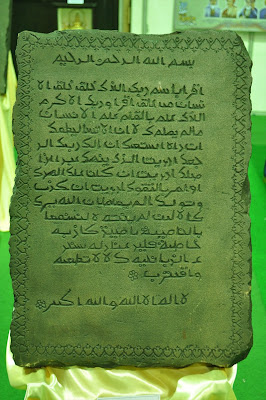 بسم الله الرحمن الرحيم
اقرا باسم ربك الذى خلق خلق الا
نسان من علق اقرا و ربك الاكرم
الذى علم بالقلم علم الانسان
مالم يعلم كلا ان الانسان ليطغى
ان راه استغنى ان الى ربك الر
جعى ارايت الذى ينهى عبدا اذا
صلى ارايت ان كان على الهدى
او امر بالتقوى ارايت ان كذب
وتولى الم يعلم بان الله يرى
كلا لئن لم ينته لنسفعا
بالناصية ناصية كاذبة
خاطئة فليدع ناديه سند
ع الزبانية كلا لا تطعه
واقترب
لا اله الا الله والله اكبر